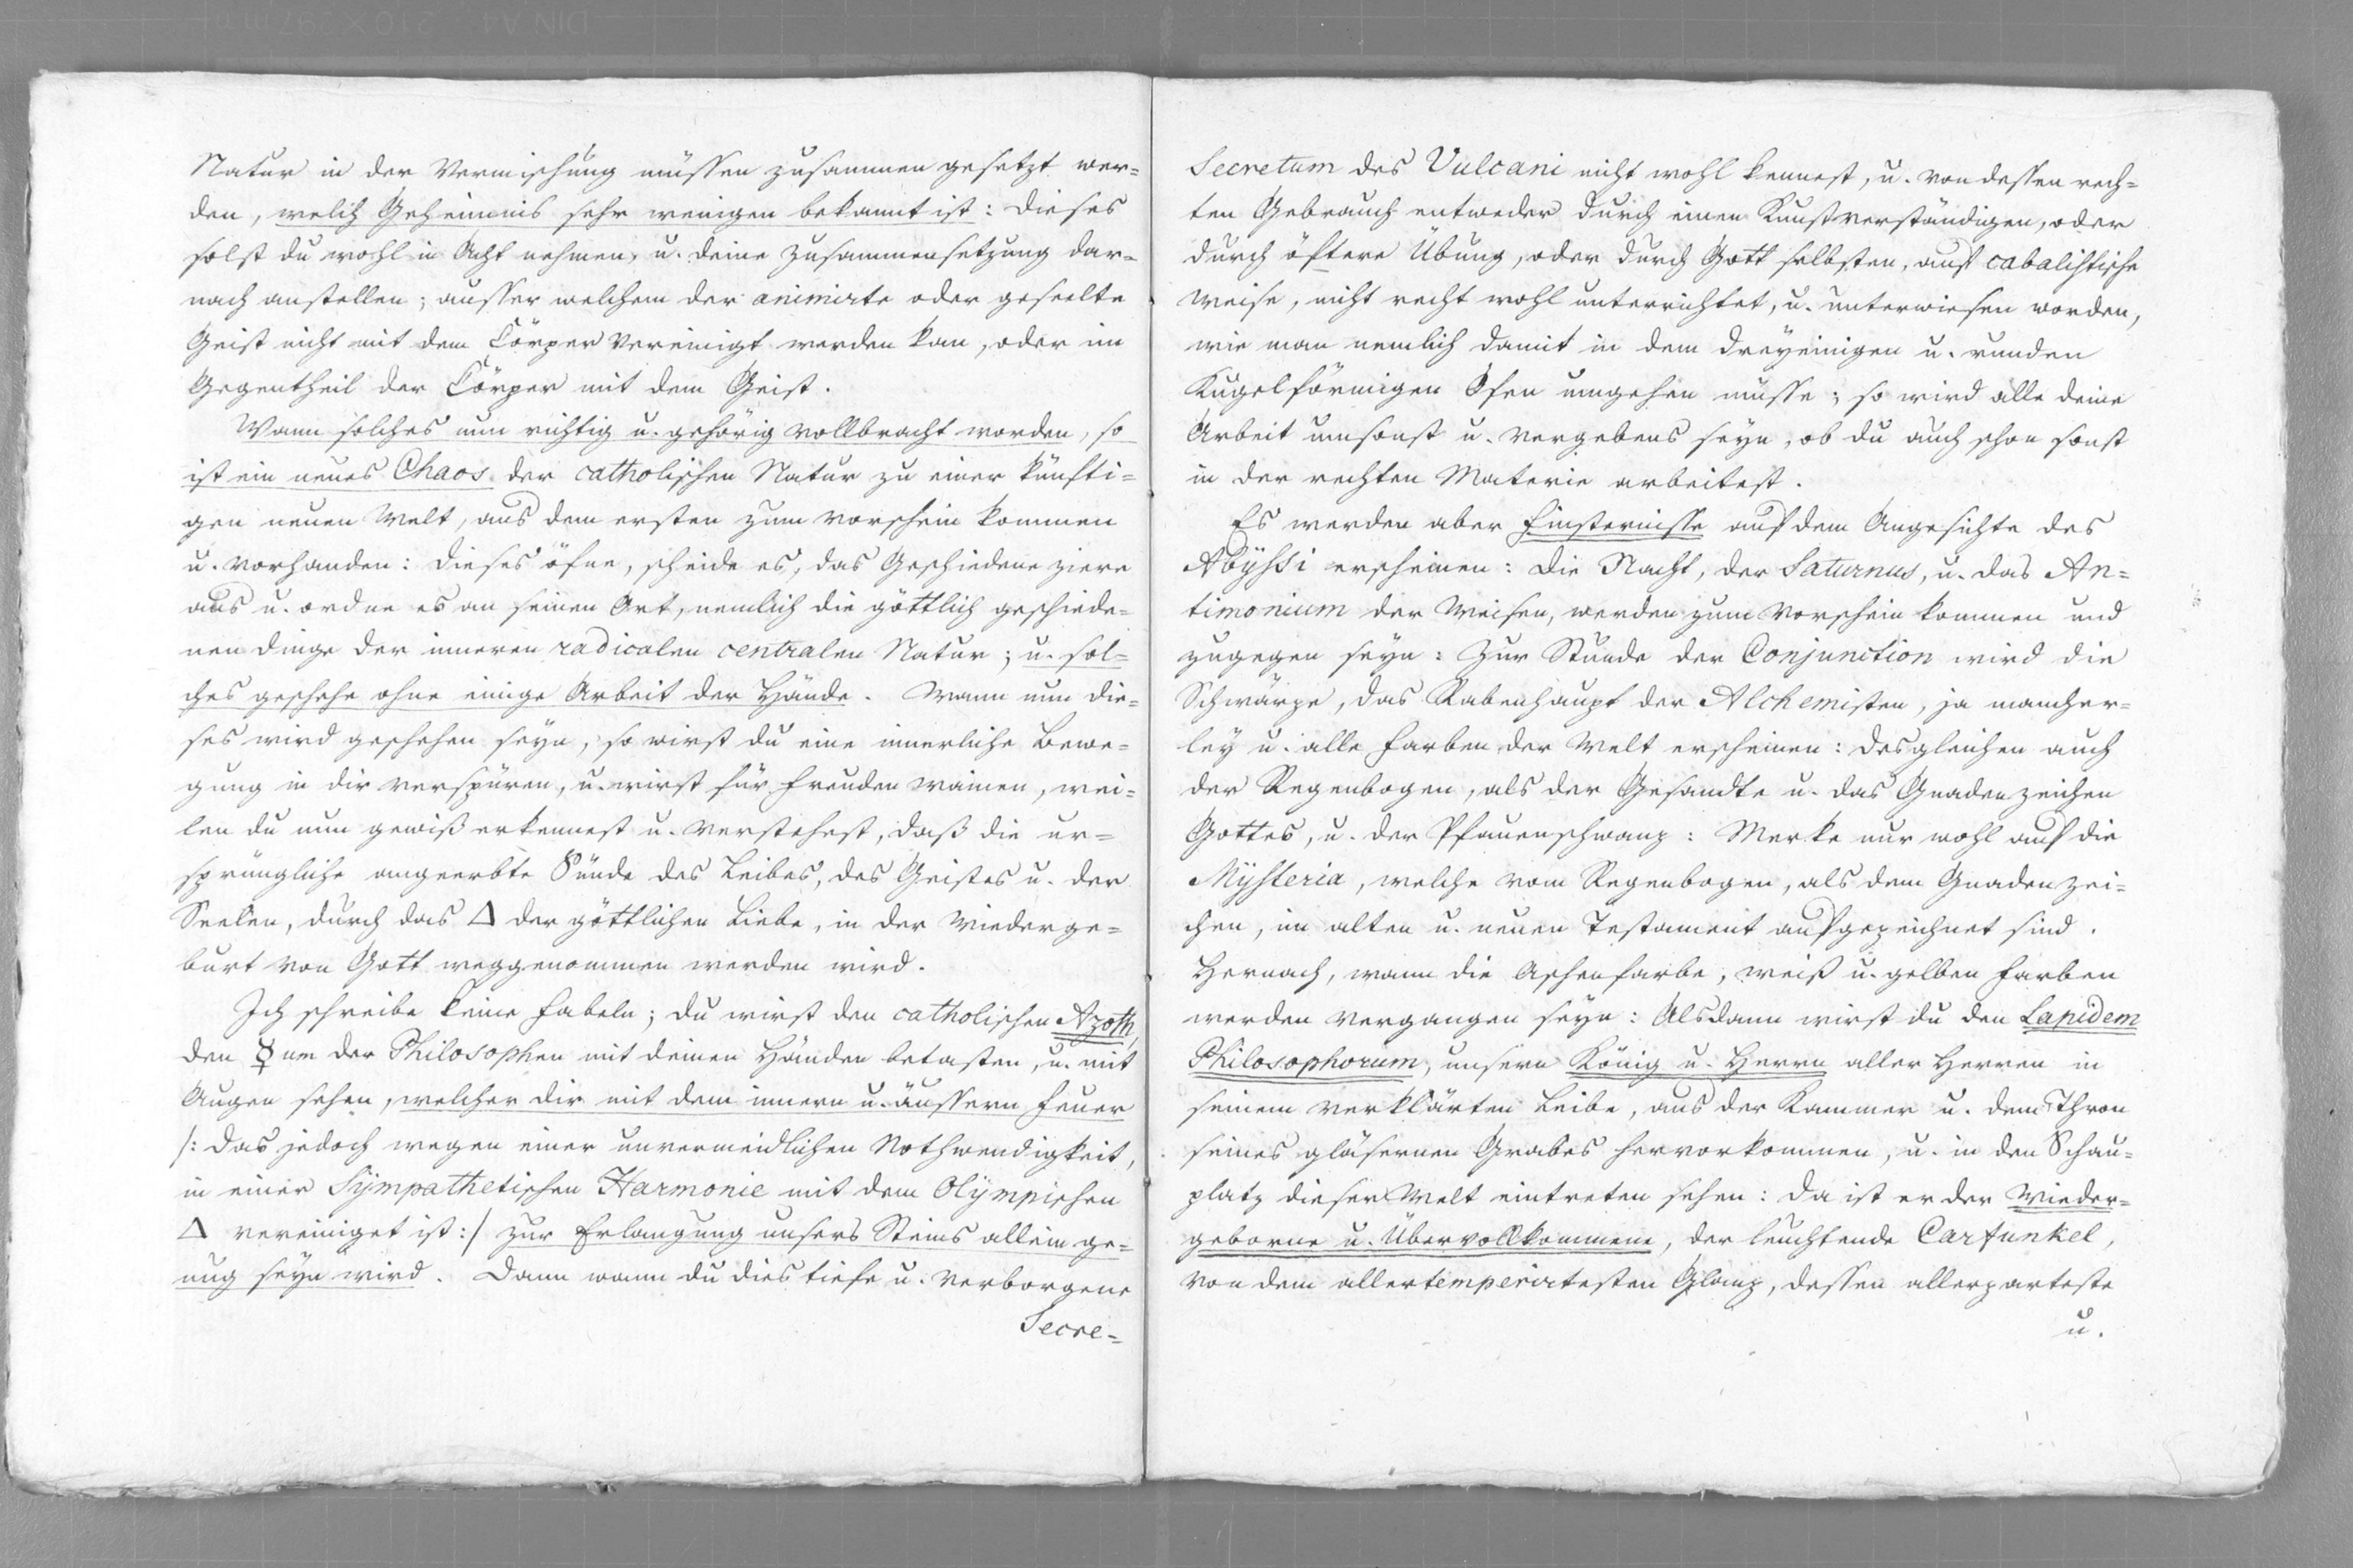 Natur in der Vermischung müssen zusammen gesetzt wer=
den, welch Geheimnis sehr wenigen bekannt ist: dieses
solst du wohl in Acht nehmen, u. deine Zusammensetzung dar=
nach anstellen; ausser welchem der animirte oder geseelte
Geist nicht mit dem Cörper vereinigt werden kan, oder im
Gegentheil der Cörper mit dem Geist.
Wann solches nun richtig u. gehörig vollbracht worden, so
ist ein neues Chaos der catholischen Natur zu einer künfti=
gen neuen Welt, aus dem ersten zum Vorschein kommen
u. vorhanden: dieses öfne, scheide es, das Geschiedene ziere
aus u. ordne es an seinen Ort, nemlich die göttlich geschiede=
nen dinge der inneren radicalen centralen Natur; u. sol=
ches geschehe ohne einige Arbeit der Hände. Wann nun die=
ses wird geschehen seyn, so wirst du eine innerliche Bewe=
gung in dir verspüren, u. wirst für Freuden wainen, wei=
len du nun gewiß erkennest u. verstehest, daß die ur=
sprüngliche angeerbte Sünde des Leibes, des Geistes u. der
Seelen, durch das △ der göttlichen Liebe, in der Wiederge=
burt von Gott weggenommen werden wird.
Ich schreibe keine Fabeln; du wirst den catholischen Azoth,
den ☿um der Philosophen mit deinen Händen betasten, u. mit
Augen sehen, welcher dir mit dem innern u. äussern Feuer
/: das jedoch wegen einer unvermeidlichen Nothwendigkeit,
in einer Sympathetischen Harmonie mit dem Olympischen
△ vereiniget ist :/ zur Erlangung unsers Steins allein ge=
nug seyn wird. Dann wann du dies tiefe u. verborgene
Secre=
Secretum des Vulcani nicht wohl kennest, u. von dessen rech=
ten Gebrauch entweder durch einen Kunstverständigen, oder
durch öftere Übung, oder durch Gott selbsten, auf cabalistische
Weise, nicht recht wohl unterrichtet, u. unterwiesen worden,
wie man nemlich damit in dem dreyeinigen u. runden
Kugelförmigen Ofen umgehen müsse; so wird alle deine
Arbeit umsonst u. vergebens seyn, ob du auch schon sonst
in der rechten Materie arbeitest.
Es werden aber Finsternisse auf dem Angesichte des
Abyssi erscheinen: die Nacht, der Saturnus, u. das An=
timonium der Weisen, werden zum Vorschein kommen und
zugegen seyn: Zur Stunde der Conjunction wird die
Schwärze, das Rabenhaupt der Alchemisten, ja mancher=
ley u. alle Farben der Welt erscheinen: desgleichen auch
der Regenbogen, als der Gesandte u. das Gnadenzeichen
Gottes, u. der Pfauenschwanz: Merke nur wohl auf die
Mysteria, welche vom Regenbogen, als dem Gnadenzei=
chen, im alten u. neuen Testament aufgezeichnet sind.
Hernach, wann die Aschenfarbe, weiß u. gelben Farben
werden vergangen seyn: Alsdann wirst du den Lapidem
Philosophorum, unsern König u. Herrn aller Herren in
seinem verklärten Leibe, aus der Kammer u. dem Thron
seines gläsernen Grabes hervorkommen, u. in den Schau=
platz dieser Welt eintreten sehen: da ist er der Wieder=
geborne u. Übervollkommene, der leuchtende Carfunkel,
von dem allertemperirtesten Glanz, dessen allerzarteste
u.